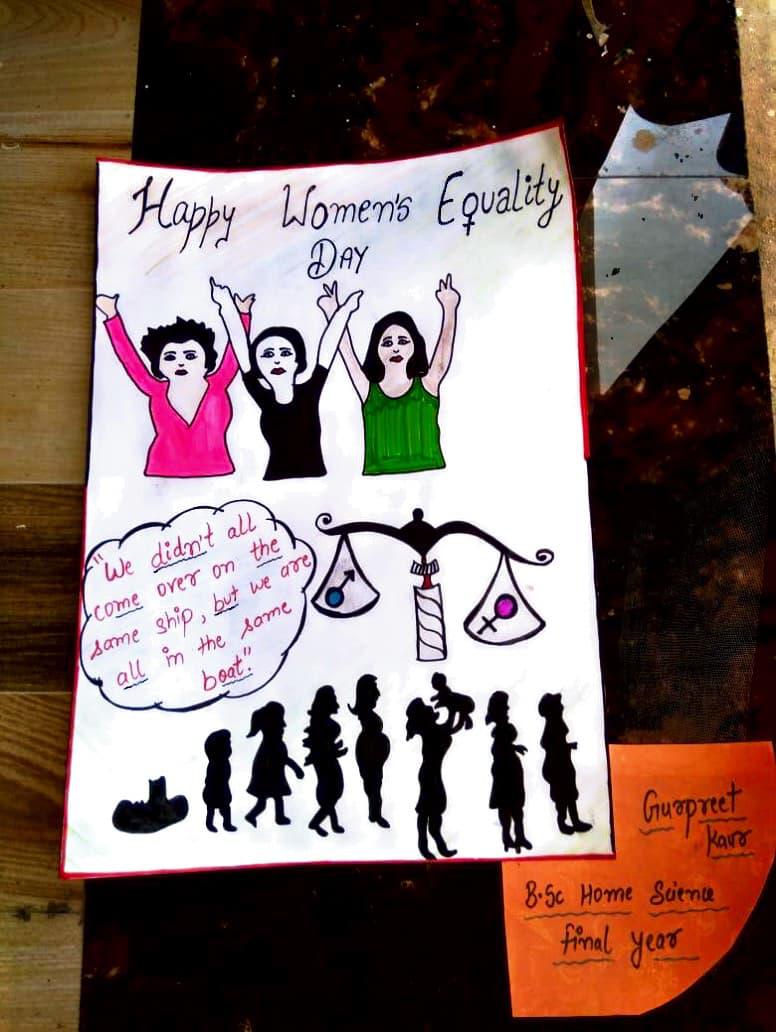 Happy Women's Equality
Day
"We didn't all
come over on the
same ship, but we are
all in the same
boat".
Gurpreet
Kaur
B.Sc Home Science
final year